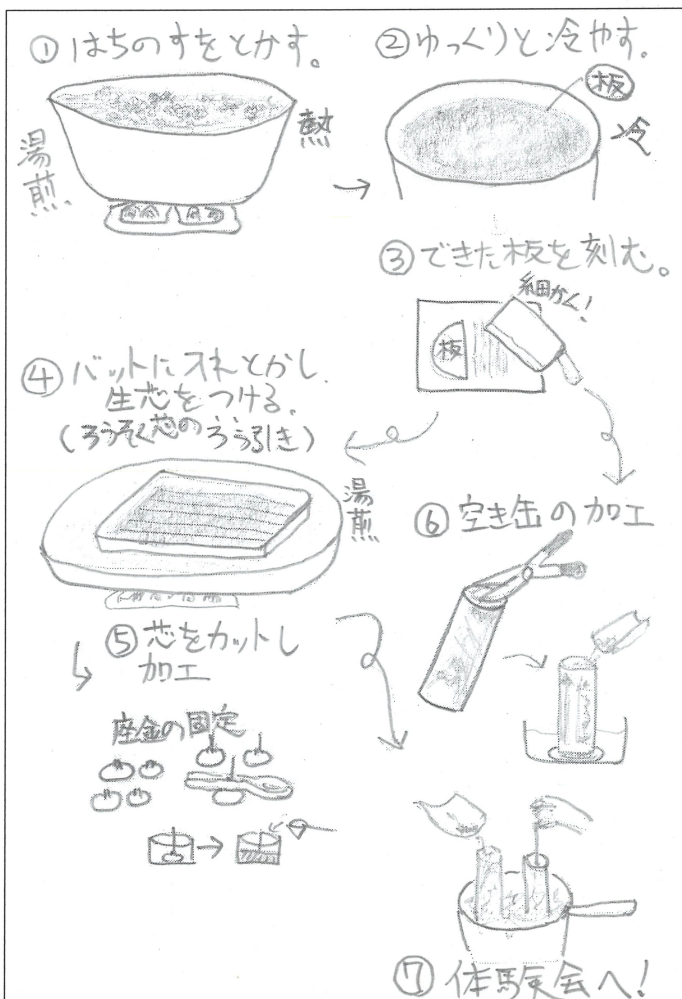 ① はちのすをとかす。
湯煎
熱
② ゆっくりと冷やす。
板
冷
③ できた板を刻む。
細かく!
板
④ バットに入れとかし
生芯をつける。
(ろうそく芯のろう引き)
湯煎
⑤ 芯をカットし
加工
座金の固定
⑥ 空き缶の加工
⑦ 体験会へ!